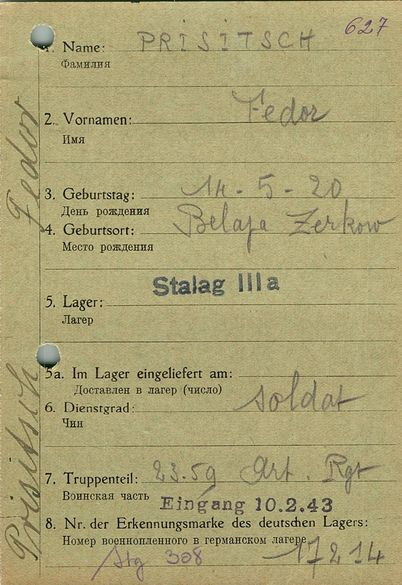 627
1. Name: PRISITSCH
Фамилия
2. Vornamen: Fedor
Имя
3. Geburtstag: 14-5-20
День рождения
4. Geburtsort: Belaja Zerkow
Место рождения
Stalag III a
5. Lager:
Лагерь
5a. Im Lager eingeliefert am:
Доставлен в лагерь (число)
6. Dienstgrad: soldat
Чин
7. Truppenteil: 23.59 Art. Rgt
Воинская часть
Eingang 10.2.43
8. Nr. der Erkennungsmarke des deutschen Lagers:
Номер военнопленного в германском лагере
Stg 308 17214
Prisitsch Fedor